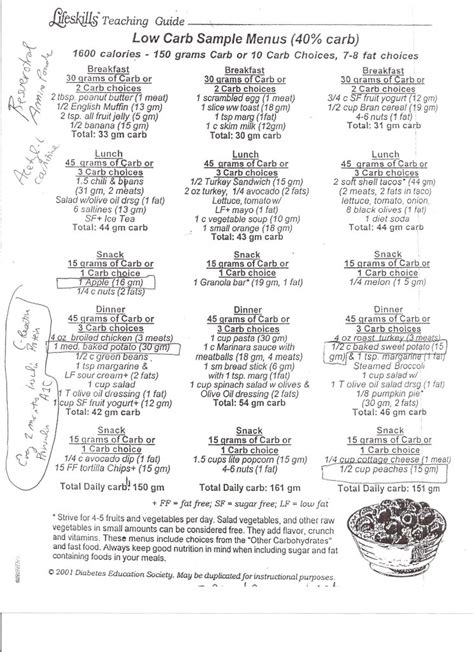 Lifeskills Teaching Guide
Low Carb Sample Menus (40% carb)
1600 calories - 150 grams Carb or 10 Carb Choices, 7-8 fat choices
Breakfast
30 grams of Carb or
2 Carb Choices
2 tbsp. peanut butter (1 meat)
1/2 English Muffin (13 gm)
2 tsp. all fruit jelly (5 gm)
1/2 banana (15 gm)
Total: 33 gm carb
Breakfast
30 grams of Carb or
2 Carb choices
1 scrambled egg (1 meat)
1 slice ww toast (18 gm)
1 tsp marg (1fat)
1 c skim milk (12gm)
Total: 30 gm carb
Breakfast
30 grams of Carb or
2 Carb choices
3/4 c SF fruit yogurt (12 gm)
1/2 cup Bran cereal (19 gm)
4-6 nuts (1 fat)
Total: 31 gm carb
Lunch
45 grams of Carb or
3 Carb choices
1.5 chili & beans
(31 gm, 2 meats)
Salad w/olive oil drsg (1 fat)
6 saltines (13 gm)
SF+ Ice Tea
Total: 44 gm carb
Lunch
45 grams of Carb or
3 Carb choices
1/2 Turkey Sandwich (15 gm)
2 oz turkey, 1/4 avocado (2 fats)
Lettuce, tomato/w
LF+ mayo (1 fat)
1 c vegetable soup (10 gm)
1 small orange (18 gm)
Total: 43 gm carb
Lunch
45 grams of Carb or
3 Carb choices
2 soft shell tacos* (44 gm)
(2 meats, 2 fats in taco)
lettuce, tomato, onion,
8 black olives (1 fat)
1 diet soda
Total: 44 gm carb
Snack
15 grams of Carb or
1 Carb choice
1 Apple (16 gm)
1/4 c nuts (2 fats)
Snack
15 grams of Carb or
1 Carb choice
1 Granola bar* (19 gm, 1 fat)
Snack
15 grams of Carb or
1 Carb choice
1/4 melon (15 gm)
Dinner
45 grams of Carb or
3 Carb choices
4 oz broiled chicken (3 meats)
1 med. baked potato (30 gm)
1/2 c green beans
1 tsp margarine &
LF sour cream+ (2 fats)
1 cup salad
1 T olive oil dressing (1 fat)
1 cup SF fruit yogurt+ (12 gm)
Total: 42 gm carb
Dinner
45 grams of Carb or
3 Carb choices
1 cup pasta (30 gm)
1 c Marinara sauce with
meatballs (18 gm, 4 meats)
1 sm bread stick (6 gm)
with 1 tsp. marg (1fat)
1 cup spinach salad w olives &
Olive Oil dressing (2 fats)
Total: 54 gm carb
Dinner
45 grams of Carb or
3 Carb choices
4 oz roast turkey (3 meats)
1/2 c baked sweet potato (15
gm) & 1 tsp. margarine (1 fat)
Steamed Broccoli
1 cup salad w/
1 T olive oil salad drsg (1 fat)
1/8 pumpkin pie*
(30 gm, 2 fats)
Total: 46 gm carb
Snack
15 grams of Carb or
1 Carb choice
1/4 c avocado dip (1 fat)
15 FF tortilla Chips+ (15 gm)
Snack
15 grams of Carb or
1 Carb choice
1.5 cups lite popcorn (15 gm)
4-6 nuts (1 fat)
Snack
15 grams of Carb or
1 Carb choice
1/4 cup cottage cheese (1 meat)
1/2 cup peaches (15 gm)
Total Daily carb: 150 gm
Total Daily carb: 161 gm
Total Daily carb: 151 gm
+ FF = fat free; SF = sugar free; LF = low fat
* Strive for 4-5 fruits and vegetables per day. Salad vegetables, and other raw
vegetables in small amounts can be considered free. They add flavor, crunch
and vitamins. These menus include choices from the "Other Carbohydrates"
and fast food. Always keep good nutrition in mind when including sugar and fat
containing foods in your meals.
© 2001 Diabetes Education Society. May be duplicated for instructional purposes.